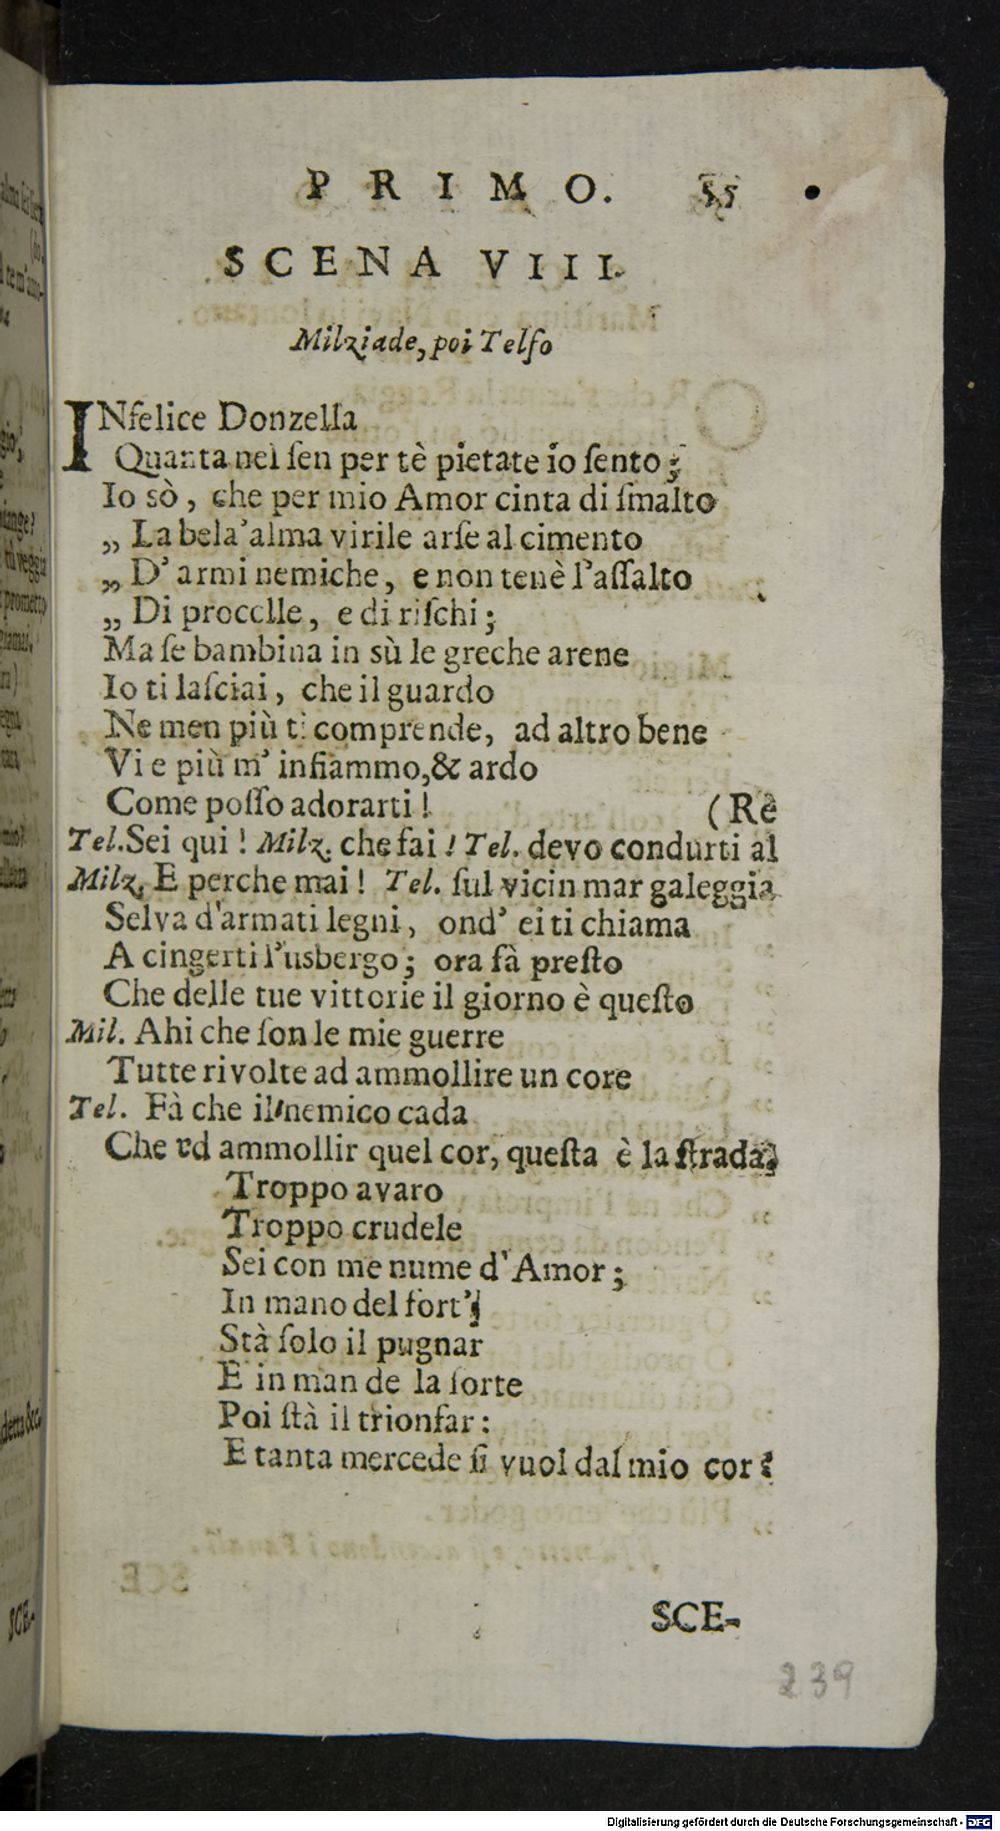 PRIMO. 35
SCENA VIII.
Milziade, poi Telſo
INfelice Donzella
Quanta nel ſen per tè pietate io ſento;
Io sò, che per mio Amor cinta di ſmalto
„ La bela'alma virile arſe al cimento
„ D'armi nemiche, e non tenè l'aſſalto
„ Di procelle, e di riſchi;
Ma ſe bambina in sù le greche arene
Io ti laſciai, che il guardo
Ne men più ti comprende, ad altro bene
Vi e più m' infiammo,& ardo
Come poſſo adorarti! (Rè
Tel.Sei qui! Milz. che fai! Tel. devo condurti al
Milz. E perche mai! Tel. ſul vicin mar galeggia
Selva d'armati legni, ond' ei ti chiama
A cingerti l'usbergo; ora fà preſto
Che delle tue vittorie il giorno è queſto
Mil. Ahi che ſon le mie guerre
Tutte rivolte ad ammollire un core
Tel. Fà che il nemico cada
Che ad ammollir quel cor, queſta è la ſtrada,
Troppo avaro
Troppo crudele
Sei con me nume d'Amor;
In mano del fort'
Stà ſolo il pugnar
E in man de la ſorte
Poi ſtà il trionfar:
E tanta mercede ſi vuol dal mio cor?
SCE-
239
Digitalisierung gefördert durch die Deutsche Forschungsgemeinschaft - DFG